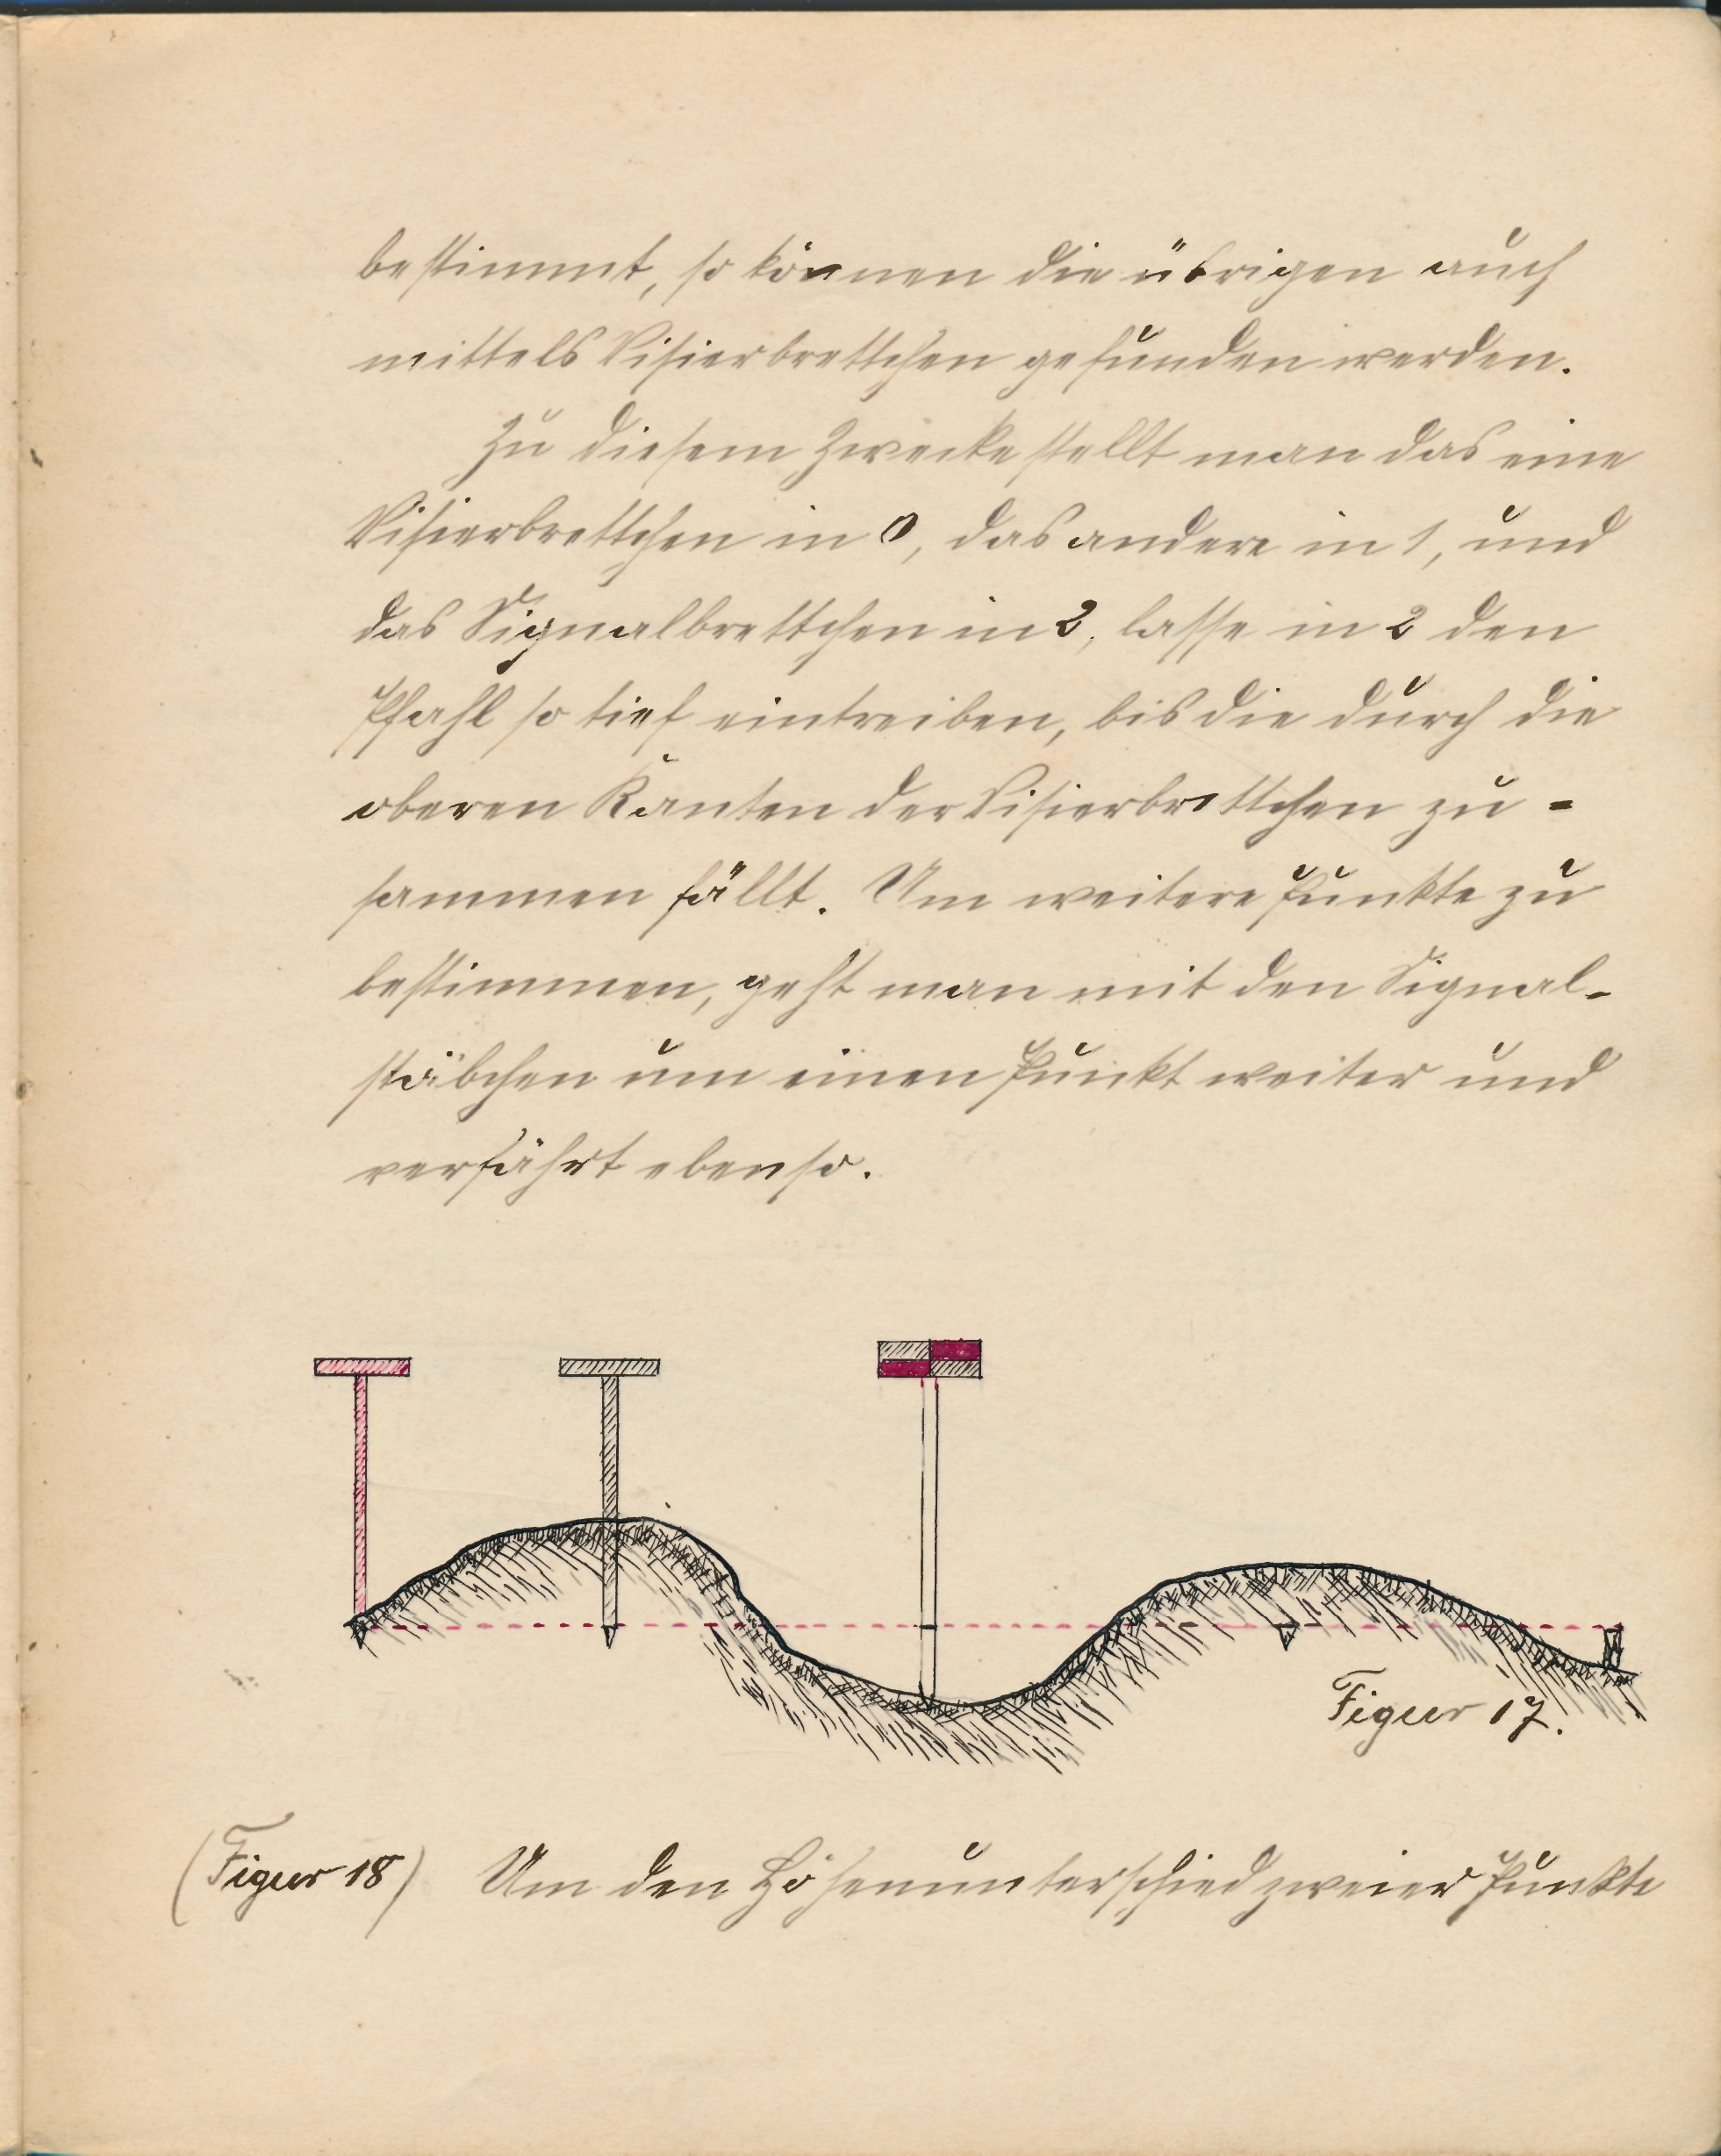 bestimmt, so können die übrigen auch
mittels Visierbrettchen gefunden werden.
Zu diesem Zwecke stellt man das eine
Visierbrettchen in 0, das andere in 1, und
das Signalbrettchen in 2, lasse in 2 den
Pfahl so tief eintreiben, bis die durch die
oberen Kanten der Visierbrettchen zu-
sammen fällt. Um weitere Punkte zu
bestimmen, geht man mit den Signal-
stäbchen um einen Punkt weiter und
verfährt ebenso.
Figur 17.
(Figur 18) Um den Höhenunterschied zweier Punkte